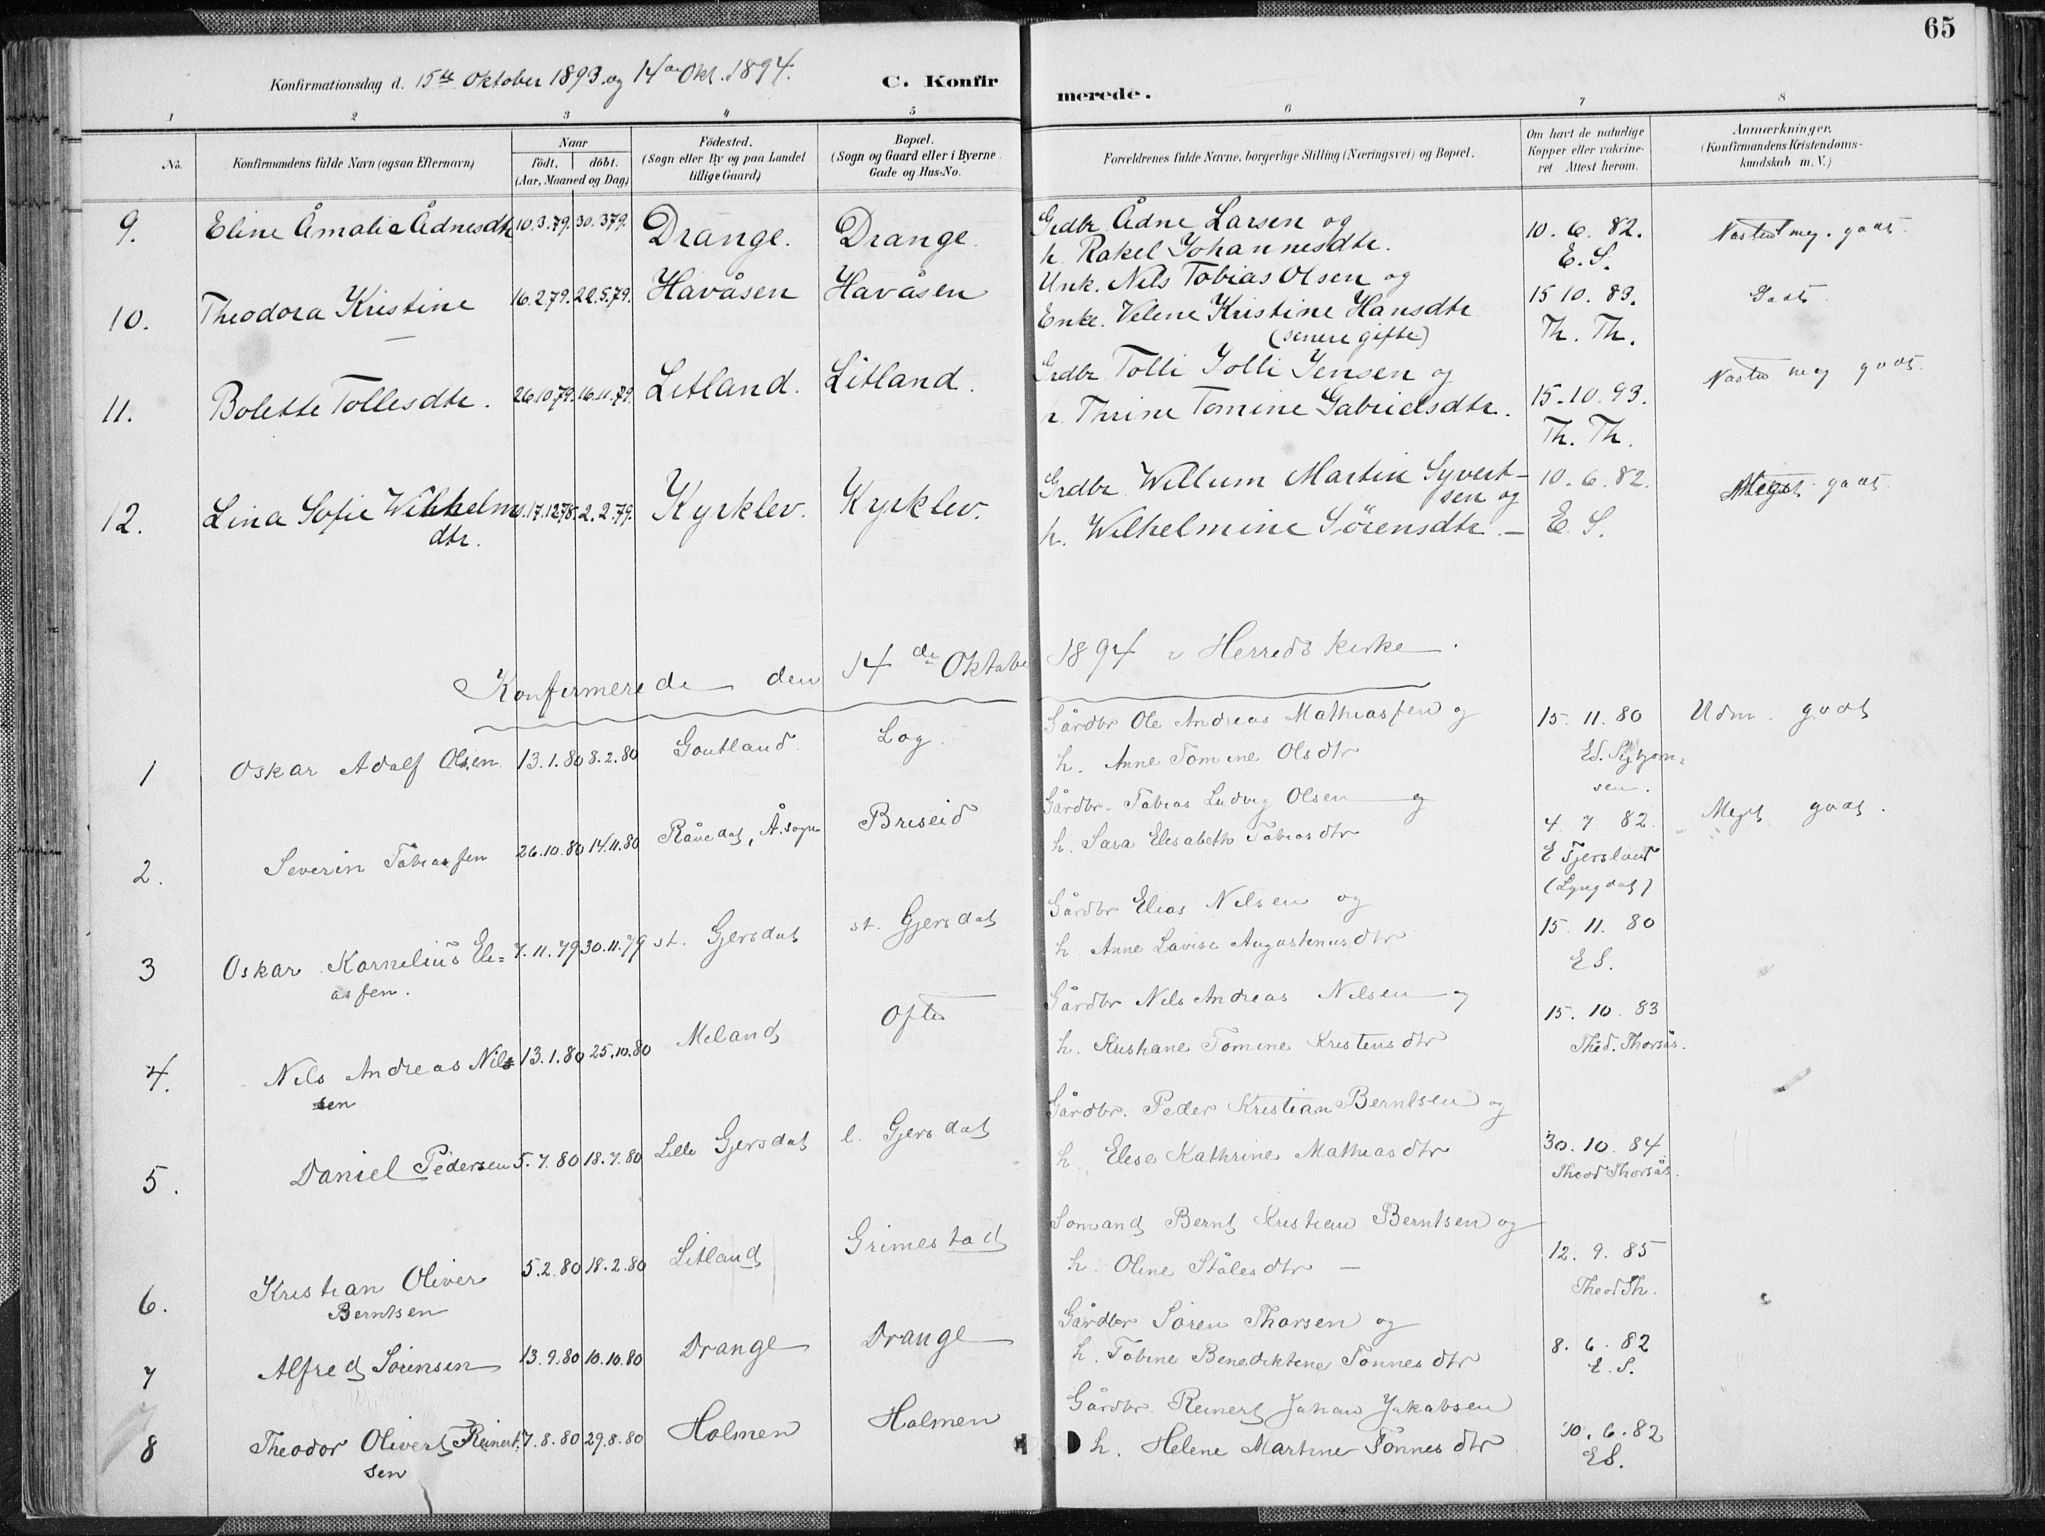 65
Konfirmationsdag d. 15de Oktober 1893 og 14de Okt. 1894.
C. Konfirmerede.
1 2 3 4 5 6 7 8
No.
Konfirmandens fulde Navn (ogsaa Efternavn)
Naar
født. døbt.
(Aar, Maaned og Dag)
Fødested.
(Sogn eller By og paa Landet
tillige Gaard)
Bopæl.
(Sogn og Gaard eller i Byerne
Gade og Hus-No.
Forældrenes fulde Navne, borgerlige Stilling (Næringsvei) og Bopæl.
Om havt de naturlige
Kopper eller vakcine-
ret Attest herom.
Anmærkninger.
(Konfirmandens Kristendoms-
kundskab m. V.)
9. Eline Åmalie Ådnesdtr 10.3.79. 30.3.79. Drange. Drange. Grdbr Ådne Larsen og 10. 6. 82. Næsten meg. godt.
h. Rakel Johannesdtr. E. S.
10. Theodora Kristine 16.2.79. 22.5.79. Havåsen Havåsen Unk. Nils Tobias Olsen og 15 10. 83. Godt
Enke. Velene Kristine Hansdtr Th. Th.
(senere gifte)
11. Bolette Tollesdtr. 26.10.79. 16.11.79. Litland. Litland. Grdbr Tolli Jolli Jensen og 15.10.93. Næsten meg godt.
h. Thrine Tomine Gabrielsdtr. Th. Th.
12. Lina Sofie Wilhelms 17.12.78. 2.2.79. Kyrklev. Kyrklev. Grdbr Willum Martin Syvert- 10. 6. 82. Meget godt
dtr. sen og
h. Wilhelmine Sörensdtr. — E. S.
Konfirmerede den 14de Oktober 1894 i Herreds kirke.
1 Oskar Adolf Olsen 13.1.80 8.2.80 Goutland. Log. Gårdbr Ole Andreas Mathiassen og 15. 11. 80 Udm. godt
h. Anne Tomine Olsdtr Ed. Sigbjørn-
sen.
2. Severin Tobiassen 26.10.80 14.11.80 Rånedal, Å. sogn Briseid Gårdbr. Tobias Ludvig Olsen og 4 7 82. Meget godt.
h. Sara Elisabeth Tobiasdtr E Tjersland
(Lyngdal)
3 Oskar Kornelius Eli= 7.11.79 30.11.79 st. Gjersdal st. Gjersdal Gårdbr Elias Nilsen og 15. 11. 80
assen. h. Anne Lovise Augustinusdtr E S.
4. Nils Andreas Nils 13.1.80 25.10.80 Meland Ofte Gårdbr Nils Andreas Nilsen og 15. 10. 83
sen h. Kristiane Tomine Kristensdtr Thod. Thorsås.
5. Daniel Pedersen 5.7.80 18.7.80 Lille Gjersdal l. Gjersdal Gårdbr. Peder Kristian Berntsen og 30. 10. 84
h. Elise Kathrine Mathiasdtr Theod Thorsås.
6. Kristian Oliver 5.2.80 18.2.80 Litland Grimestad Sømand Bernt Kristian Berntsen og 12. 9. 85
Berntsen h. Oline Stålesdtr — Theod Th.
7 Alfred Sörensen 13.9.80 10.10.80 Drange Drange Gårdbr Sören Thorsen og 8. 6. 82
h. Tobine Benediktine Tönnesdtr E. S.
8 Theodor Olivert Reinert. 7.8.80 29.8.80 Holmen Holmen Gårdbr. Reinert Johan Jakobsen 10. 6. 82
sen h. Helene Martine Tönnesdtr E S.